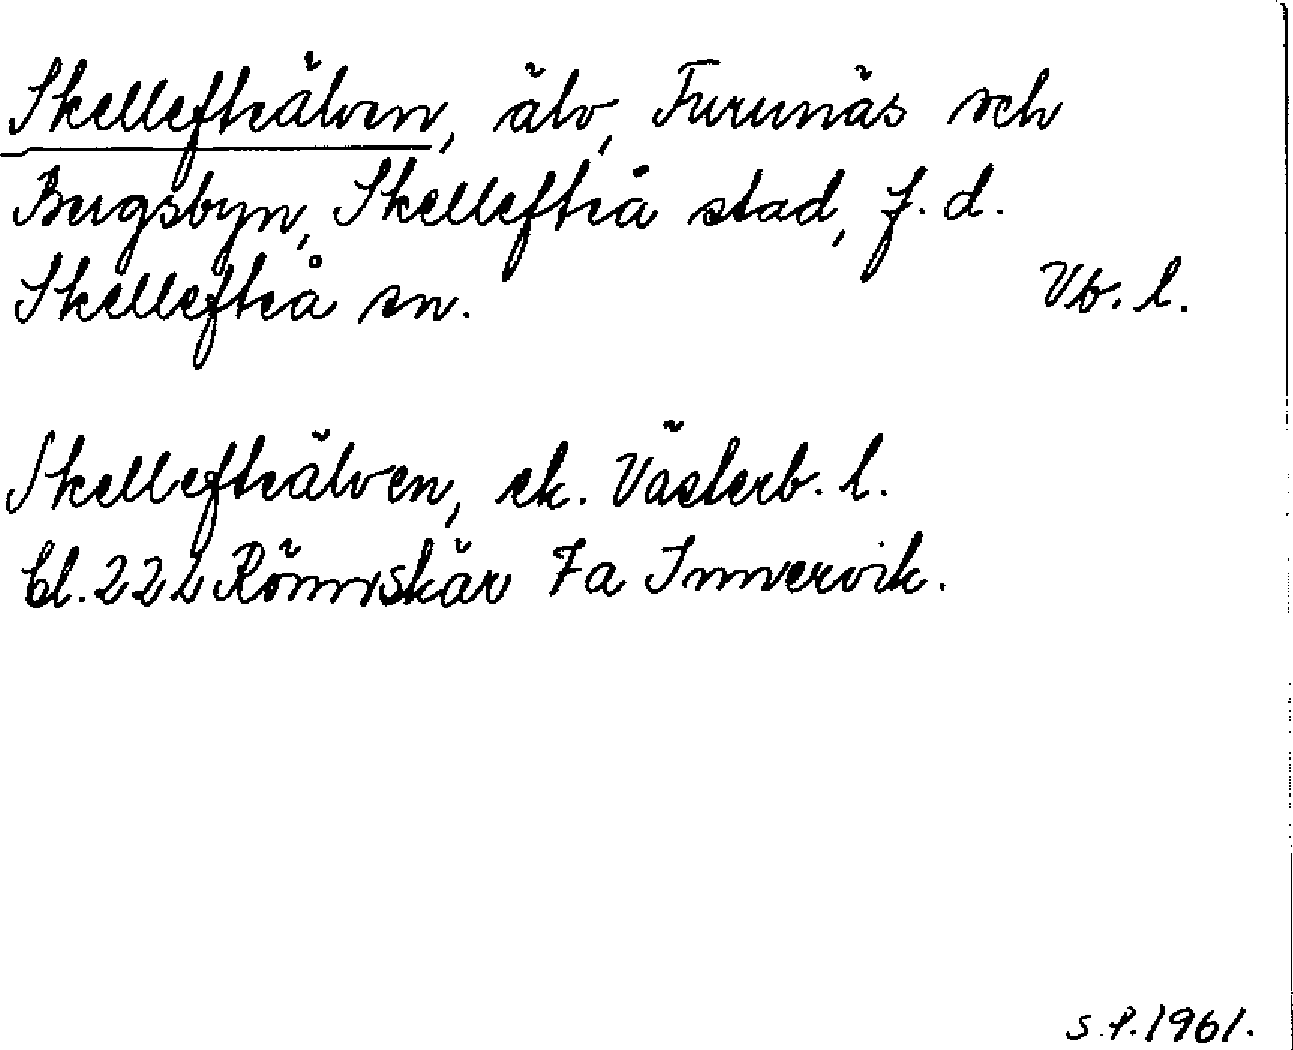 Skellefteälven, älv, Furunäs och
Bergsbyn, Skellefteå stad, f.d.
Skellefteå sn. Vb. l.
Skellefteälven, ek. Västerb. l.
bl. 222 Rönnskär 7a Innervik.
S.P. 1961.